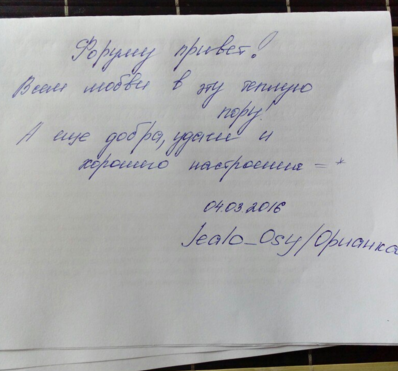 Форуму привет!
Всем любви в эту теплую
пору!
А еще добра, удачи и
хорошего настроения =*
04.03.2016
Jealo_Osy/Орианна